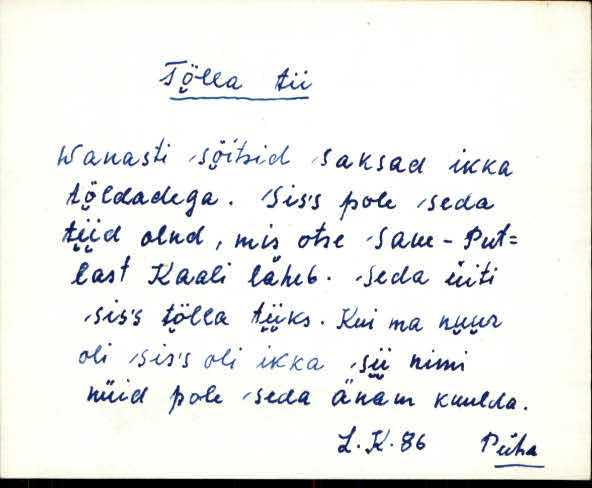 Tõlla tii
Wanasti sõitsid saksad ikka
tõldadega. Siss pole seda
tiid olnd, mis otse Saue-Put=
last Kaali läheb. Seda üiti
siss tõlla tiiks. Kui ma nuur
oli siss oli ikka sii nimi
nüid pole seda änäm kuulda.
L.K. 86 Püha